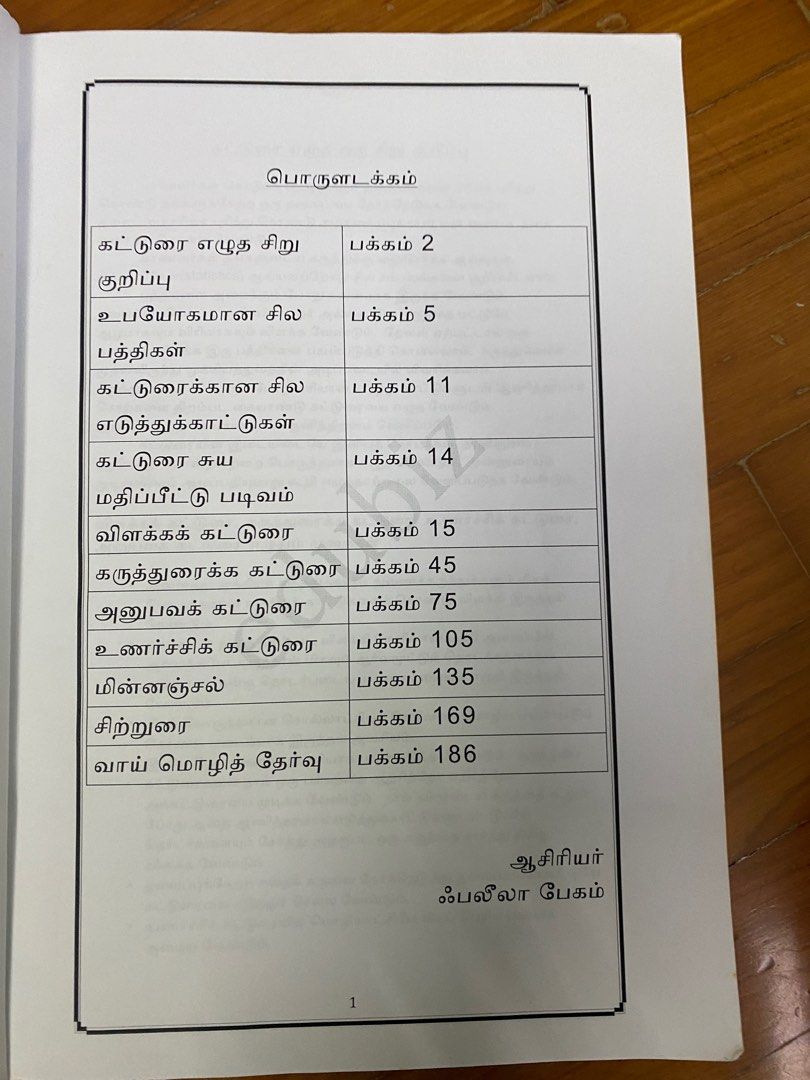 பொருளடக்கம்
கட்டுரை எழுத சிறு
குறிப்பு
பக்கம் 2
உபயோகமான சில
பத்திகள்
பக்கம் 5
கட்டுரைக்கான சில
எடுத்துக்காட்டுகள்
பக்கம் 11
கட்டுரை சுய
மதிப்பீட்டு படிவம்
பக்கம் 14
விளக்கக் கட்டுரை பக்கம் 15
கருத்துரைக்க கட்டுரை பக்கம் 45
அனுபவக் கட்டுரை பக்கம் 75
உணர்ச்சிக் கட்டுரை பக்கம் 105
மின்னஞ்சல் பக்கம் 135
சிற்றுரை பக்கம் 169
வாய் மொழித் தேர்வு பக்கம் 186
edubiz
ஆசிரியர்
ஃபலீலா பேகம்
1